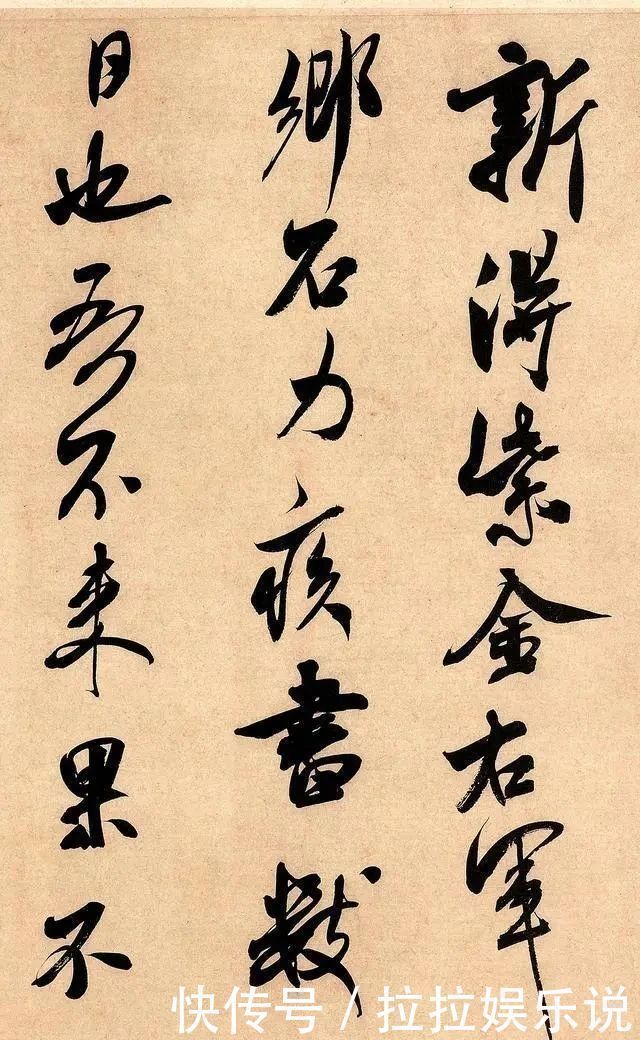 新得紫金右軍
鄉石力疾書數
日也吾不来果不
快传号/拉拉娱乐说